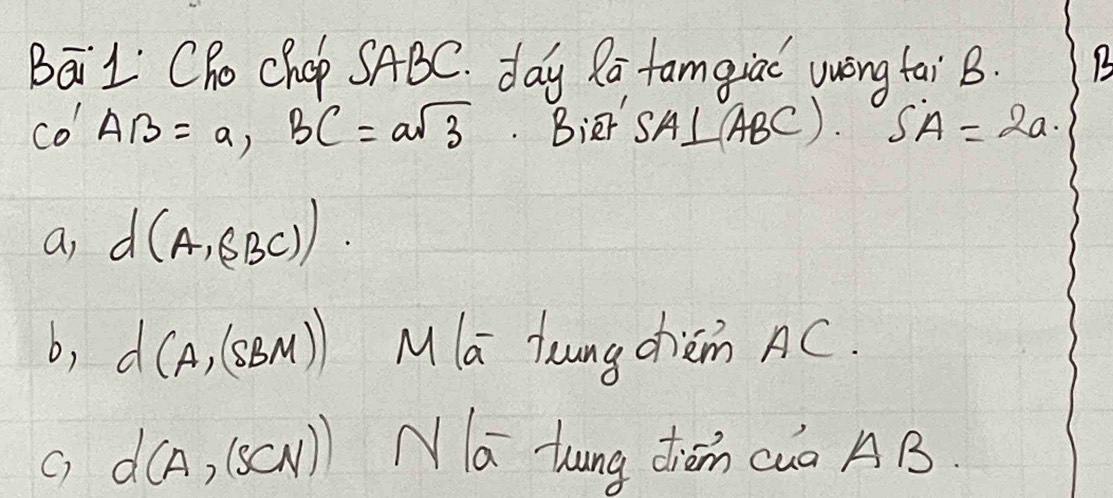 Bài 1: Cho chóp SABC. đáy là tam giác vuông tại B.
có AB = a, BC = a√3. Biết SA⊥(ABC). SA = 2a.
a, d(A,(SBC)).
b, d(A,(SBM)) M là trung điểm AC.
c, d(A,(SCN)) N là trung điểm của AB.
B